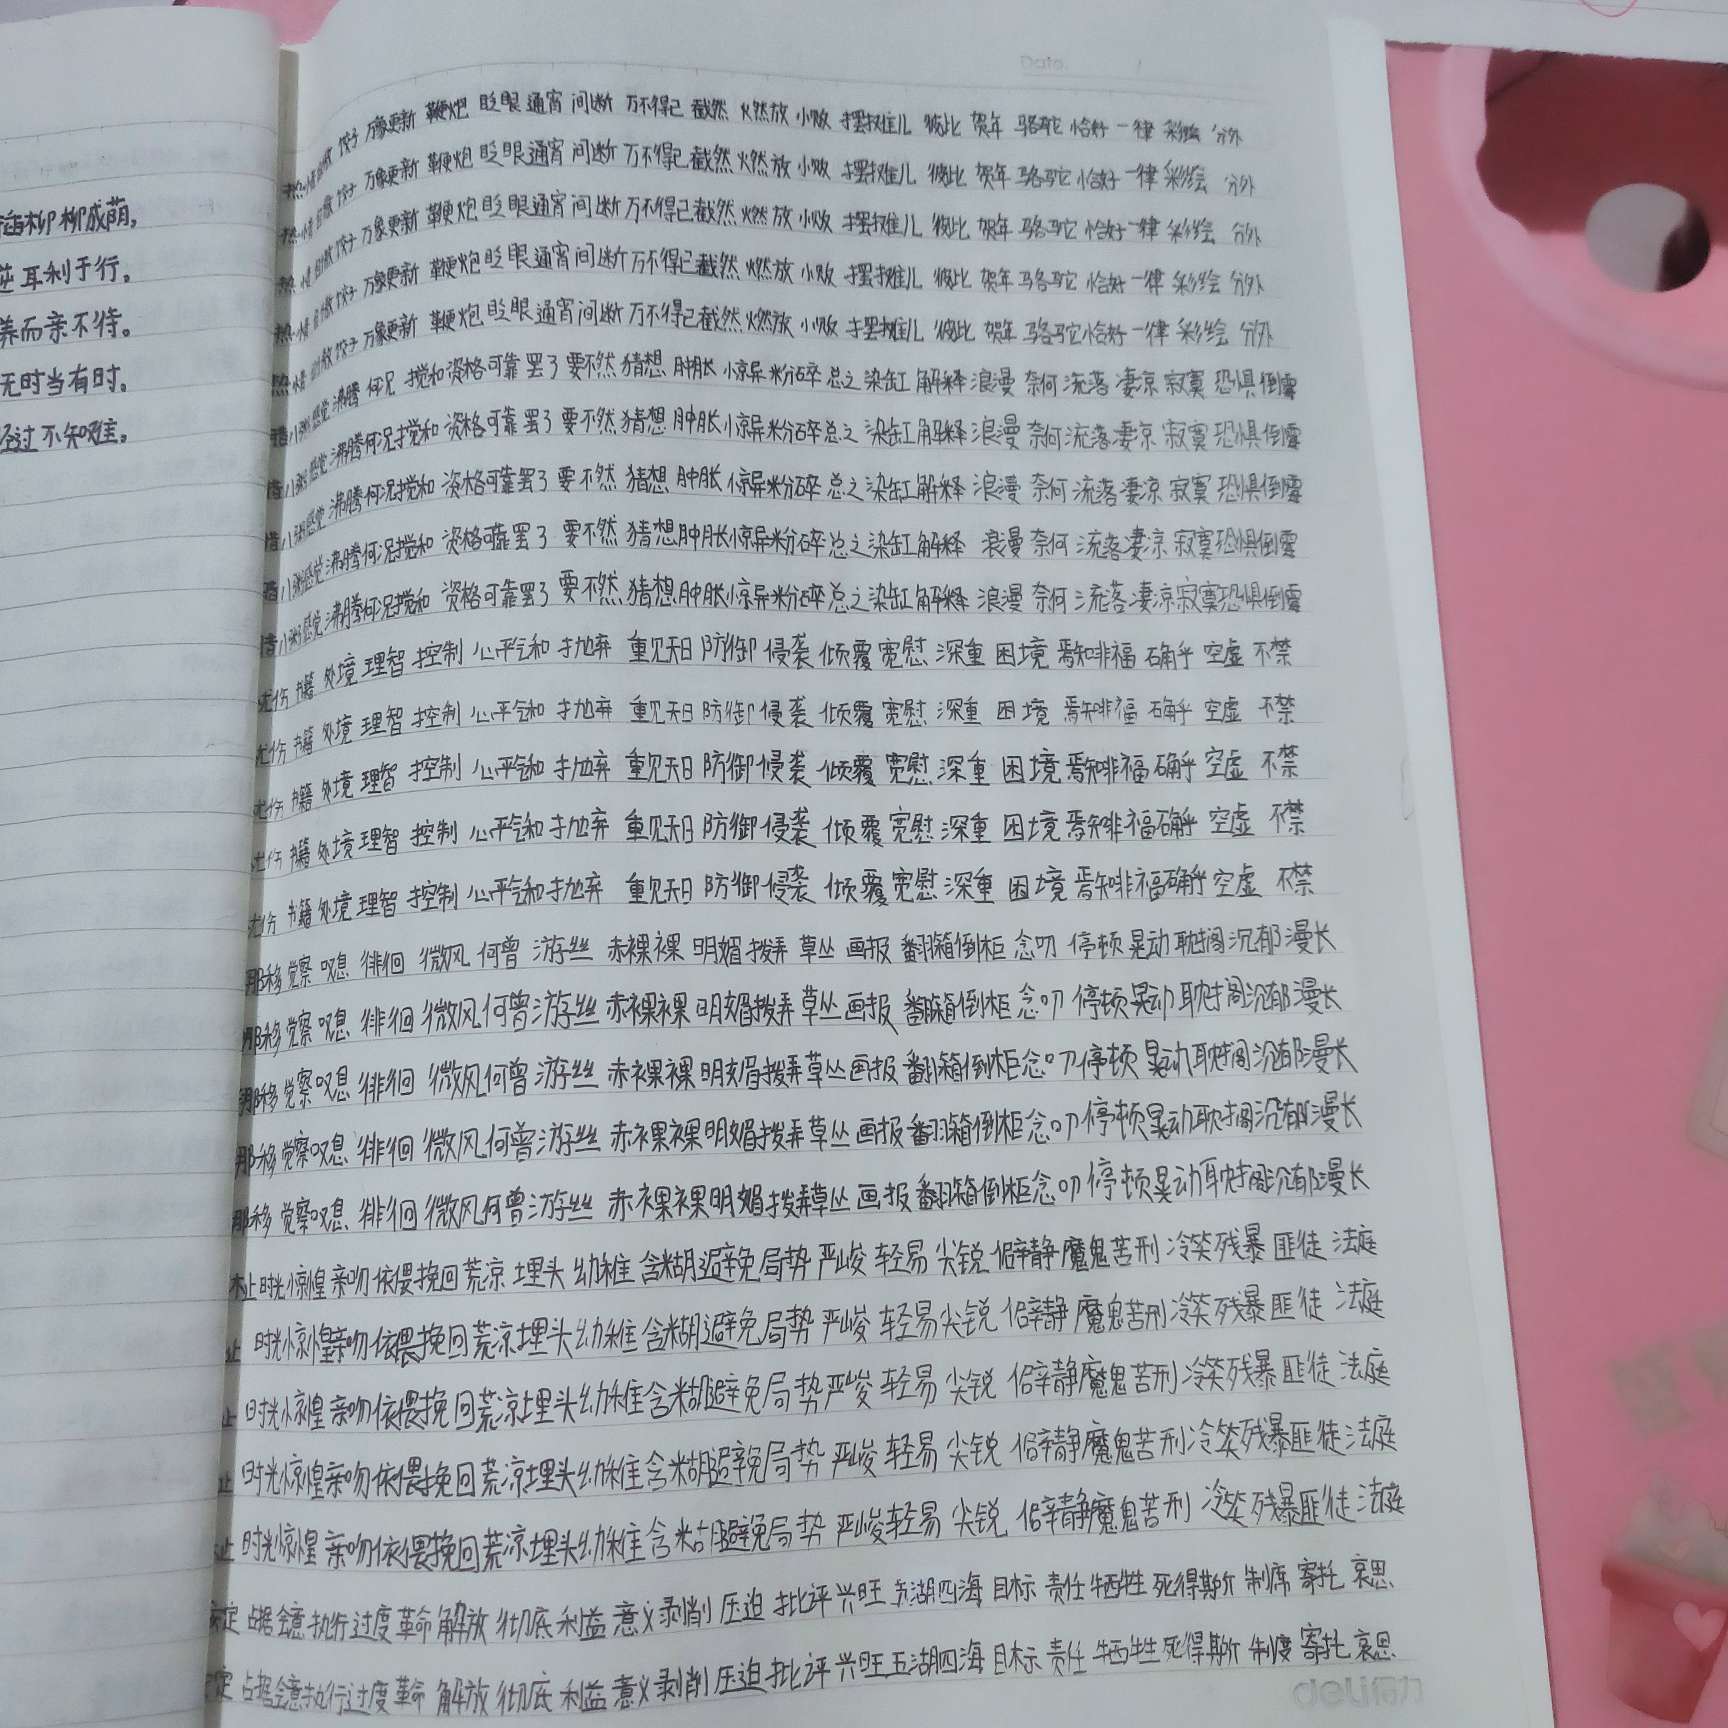 柳柳成荫。
逆耳利于行。
养而亲不待。
无时当有时。
经过不知难。
Date.
热情 散 饺子 万象更新 鞭炮 眨眼 通宵 间断 万不得已 截然 燃放 小贩 摆摊儿 彼此 贺年 骆驼 恰好 一律 彩绘 分外
热情 散 饺子 万象更新 鞭炮 眨眼 通宵 间断 万不得已 截然 燃放 小贩 摆摊儿 彼此 贺年 骆驼 恰好 一律 彩绘 分外
热情 散 饺子 万象更新 鞭炮 眨眼 通宵 间断 万不得已 截然 燃放 小贩 摆摊儿 彼此 贺年 骆驼 恰好 一律 彩绘 分外
热情 散 饺子 万象更新 鞭炮 眨眼 通宵 间断 万不得已 截然 燃放 小贩 摆摊儿 彼此 贺年 骆驼 恰好 一律 彩绘 分外
热情 散 饺子 万象更新 鞭炮 眨眼 通宵 间断 万不得已 截然 燃放 小贩 摆摊儿 彼此 贺年 骆驼 恰好 一律 彩绘 分外
腊八粥 感觉 沸腾 何况 搅和 资格 可靠 罢了 要不然 猜想 肿胀 惊异 粉碎 总之 染缸 解释 浪漫 奈何 流落 凄凉 寂寞 恐惧 倒霉
腊八粥 感觉 沸腾 何况 搅和 资格 可靠 罢了 要不然 猜想 肿胀 惊异 粉碎 总之 染缸 解释 浪漫 奈何 流落 凄凉 寂寞 恐惧 倒霉
腊八粥 感觉 沸腾 何况 搅和 资格 可靠 罢了 要不然 猜想 肿胀 惊异 粉碎 总之 染缸 解释 浪漫 奈何 流落 凄凉 寂寞 恐惧 倒霉
腊八粥 感觉 沸腾 何况 搅和 资格 可靠 罢了 要不然 猜想 肿胀 惊异 粉碎 总之 染缸 解释 浪漫 奈何 流落 凄凉 寂寞 恐惧 倒霉
腊八粥 感觉 沸腾 何况 搅和 资格 可靠 罢了 要不然 猜想 肿胀 惊异 粉碎 总之 染缸 解释 浪漫 奈何 流落 凄凉 寂寞 恐惧 倒霉
忧伤 书籍 处境 理智 控制 心平气和 抛弃 重见天日 防御 侵袭 倾覆 宽慰 深重 困境 焉知非福 确乎 空虚 不禁
忧伤 书籍 处境 理智 控制 心平气和 抛弃 重见天日 防御 侵袭 倾覆 宽慰 深重 困境 焉知非福 确乎 空虚 不禁
忧伤 书籍 处境 理智 控制 心平气和 抛弃 重见天日 防御 侵袭 倾覆 宽慰 深重 困境 焉知非福 确乎 空虚 不禁
忧伤 书籍 处境 理智 控制 心平气和 抛弃 重见天日 防御 侵袭 倾覆 宽慰 深重 困境 焉知非福 确乎 空虚 不禁
忧伤 书籍 处境 理智 控制 心平气和 抛弃 重见天日 防御 侵袭 倾覆 宽慰 深重 困境 焉知非福 确乎 空虚 不禁
挪移 觉察 叹息 徘徊 微风 何曾 游丝 赤裸裸 明媚 拨弄 草丛 画报 翻箱倒柜 念叨 停顿 晃动 耽搁 沉郁 漫长
挪移 觉察 叹息 徘徊 微风 何曾 游丝 赤裸裸 明媚 拨弄 草丛 画报 翻箱倒柜 念叨 停顿 晃动 耽搁 沉郁 漫长
挪移 觉察 叹息 徘徊 微风 何曾 游丝 赤裸裸 明媚 拨弄 草丛 画报 翻箱倒柜 念叨 停顿 晃动 耽搁 沉郁 漫长
挪移 觉察 叹息 徘徊 微风 何曾 游丝 赤裸裸 明媚 拨弄 草丛 画报 翻箱倒柜 念叨 停顿 晃动 耽搁 沉郁 漫长
挪移 觉察 叹息 徘徊 微风 何曾 游丝 赤裸裸 明媚 拨弄 草丛 画报 翻箱倒柜 念叨 停顿 晃动 耽搁 沉郁 漫长
止 时光 惊惶 亲吻 依偎 挽回 荒凉 埋头 幼稚 含糊 避免 局势 严峻 轻易 尖锐 僻静 魔鬼 苦刑 冷笑 残暴 匪徒 法庭
止 时光 惊惶 亲吻 依偎 挽回 荒凉 埋头 幼稚 含糊 避免 局势 严峻 轻易 尖锐 僻静 魔鬼 苦刑 冷笑 残暴 匪徒 法庭
止 时光 惊惶 亲吻 依偎 挽回 荒凉 埋头 幼稚 含糊 避免 局势 严峻 轻易 尖锐 僻静 魔鬼 苦刑 冷笑 残暴 匪徒 法庭
止 时光 惊惶 亲吻 依偎 挽回 荒凉 埋头 幼稚 含糊 避免 局势 严峻 轻易 尖锐 僻静 魔鬼 苦刑 冷笑 残暴 匪徒 法庭
止 时光 惊惶 亲吻 依偎 挽回 荒凉 埋头 幼稚 含糊 避免 局势 严峻 轻易 尖锐 僻静 魔鬼 苦刑 冷笑 残暴 匪徒 法庭
定 占据 会意 执行 过度 革命 解放 彻底 利益 意义 剥削 压迫 批评 兴旺 五湖四海 目标 责任 牺牲 死得其所 制席 寄托 哀思
定 占据 会意 执行 过度 革命 解放 彻底 利益 意义 剥削 压迫 批评 兴旺 五湖四海 目标 责任 牺牲 死得其所 制度 寄托 哀思
deli得力